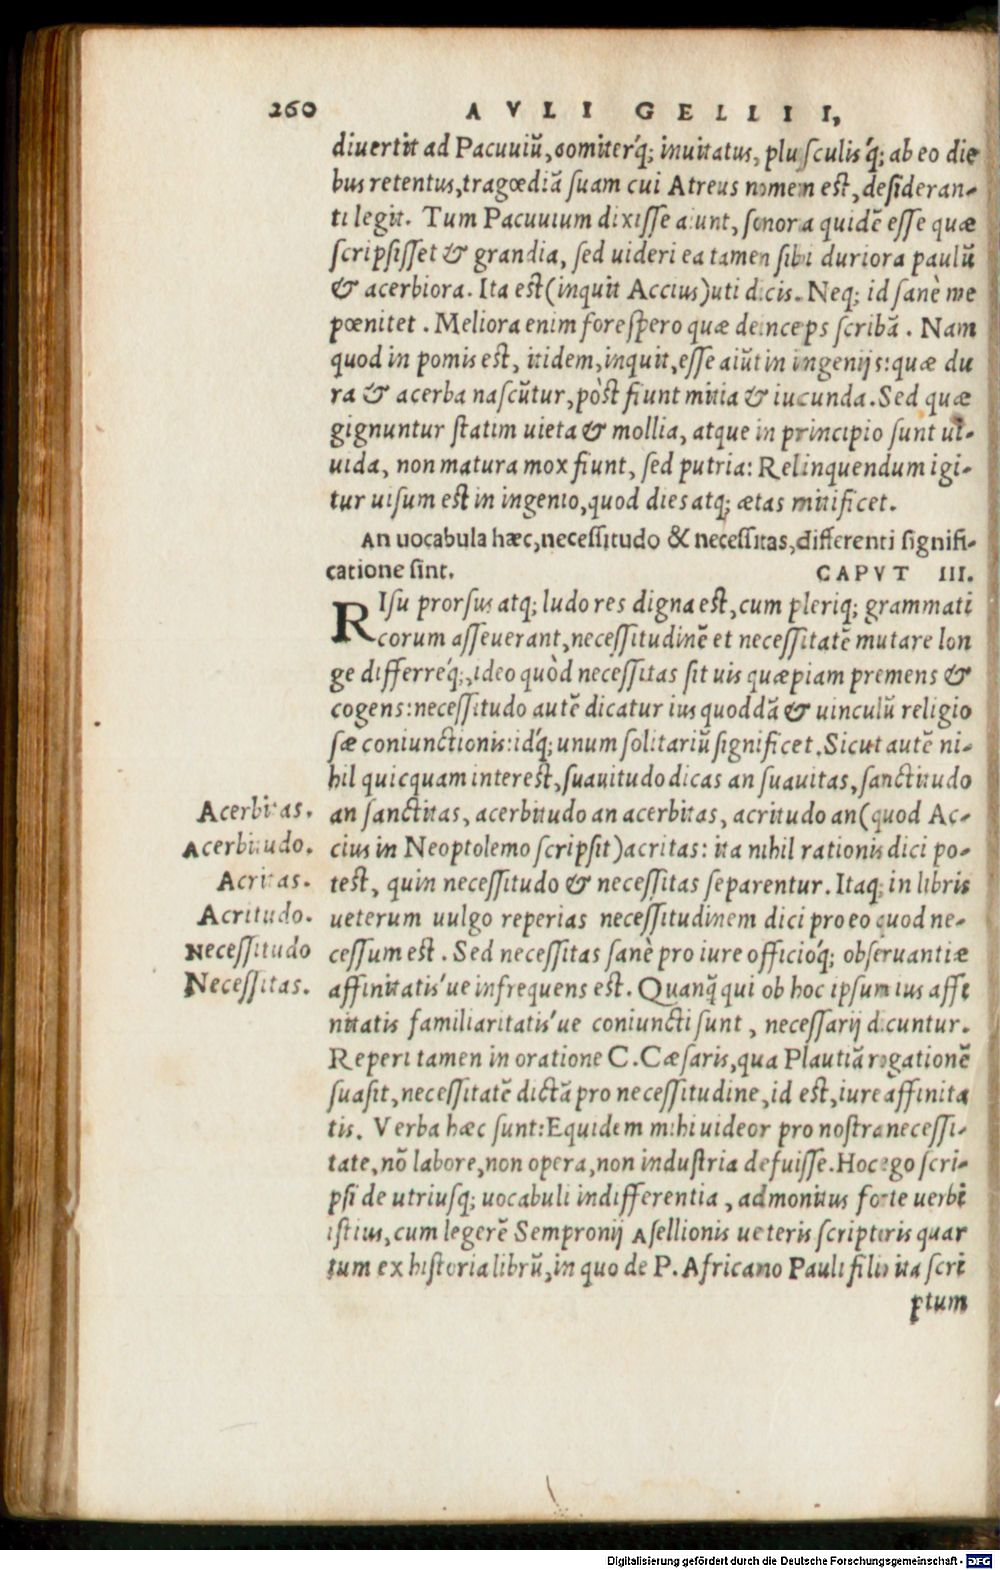 260 AVLI GELLII,
diuertit ad Pacuuiũ, comiterq́; inuitatus, plusculisq́; ab eo die
bus retentus, tragœdiã suam cui Atreus nomen est, desideran-
ti legit. Tum Pacuuium dixisse aiunt, sonora quidẽ esse quæ
scripsisset & grandia, sed uideri ea tamen sibi duriora paulũ
& acerbiora. Ita est (inquit Accius) uti dicis. Neq; id sanè me
pœnitet. Meliora enim fore spero quæ deinceps scribã. Nam
quod in pomis est, itidem, inquit, esse aiũt in ingenijs: quæ du
ra & acerba nascũtur, pòst fiunt mitia & iucunda. Sed quæ
gignuntur statim uieta & mollia, atque in principio sunt ui-
uida, non matura mox fiunt, sed putria: Relinquendum igi-
tur uisum est in ingenio, quod dies atq; ætas mitificet.
An uocabula hæc, necessitudo & necessitas, differenti signifi-
catione sint. CAPVT III.
RIsu prorsus atq; ludo res digna est, cum pleriq; grammati
corum asseuerant, necessitudinẽ et necessitatẽ mutare lon
ge differreq́;, ideo quòd necessitas sit uis quæpiam premens &
cogens: necessitudo autẽ dicatur ius quoddã & uinculũ religio
sæ coniunctionis: idq́; unum solitariũ significet. Sicut autẽ ni-
hil quicquam interest, suauitudo dicas an suauitas, sanctitudo
Acerbitas. an sanctitas, acerbitudo an acerbitas, acritudo an (quod Ac-
Acerbitudo. cius in Neoptolemo scripsit) acritas: ita nihil rationis dici po-
Acritas. test, quin necessitudo & necessitas separentur. Itaq; in libris
Acritudo. ueterum uulgo reperias necessitudinem dici pro eo quod ne-
Necessitudo cessum est. Sed necessitas sanè pro iure officioq́; obseruantiæ
Necessitas. affinitatis'ue infrequens est. Quanq̃ qui ob hoc ipsum ius affi
nitatis familiaritatis'ue coniuncti sunt, necessarij dicuntur.
Reperi tamen in oratione C. Cæsaris, qua Plautiã rogationẽ
suasit, necessitatẽ dictã pro necessitudine, id est, iure affinita
tis. Verba hæc sunt: Equidem mihi uideor pro nostra necessi-
tate, nõ labore, non opera, non industria defuisse. Hoc ego scri-
psi de utriusq; uocabuli indifferentia, admonitus forte uerbi
istius, cum legerẽ Sempronij Asellionis ueteris scriptoris quar
tum ex historia librũ, in quo de P. Africano Pauli filio ita scri
ptum
Digitalisierung gefördert durch die Deutsche Forschungsgemeinschaft - DFG